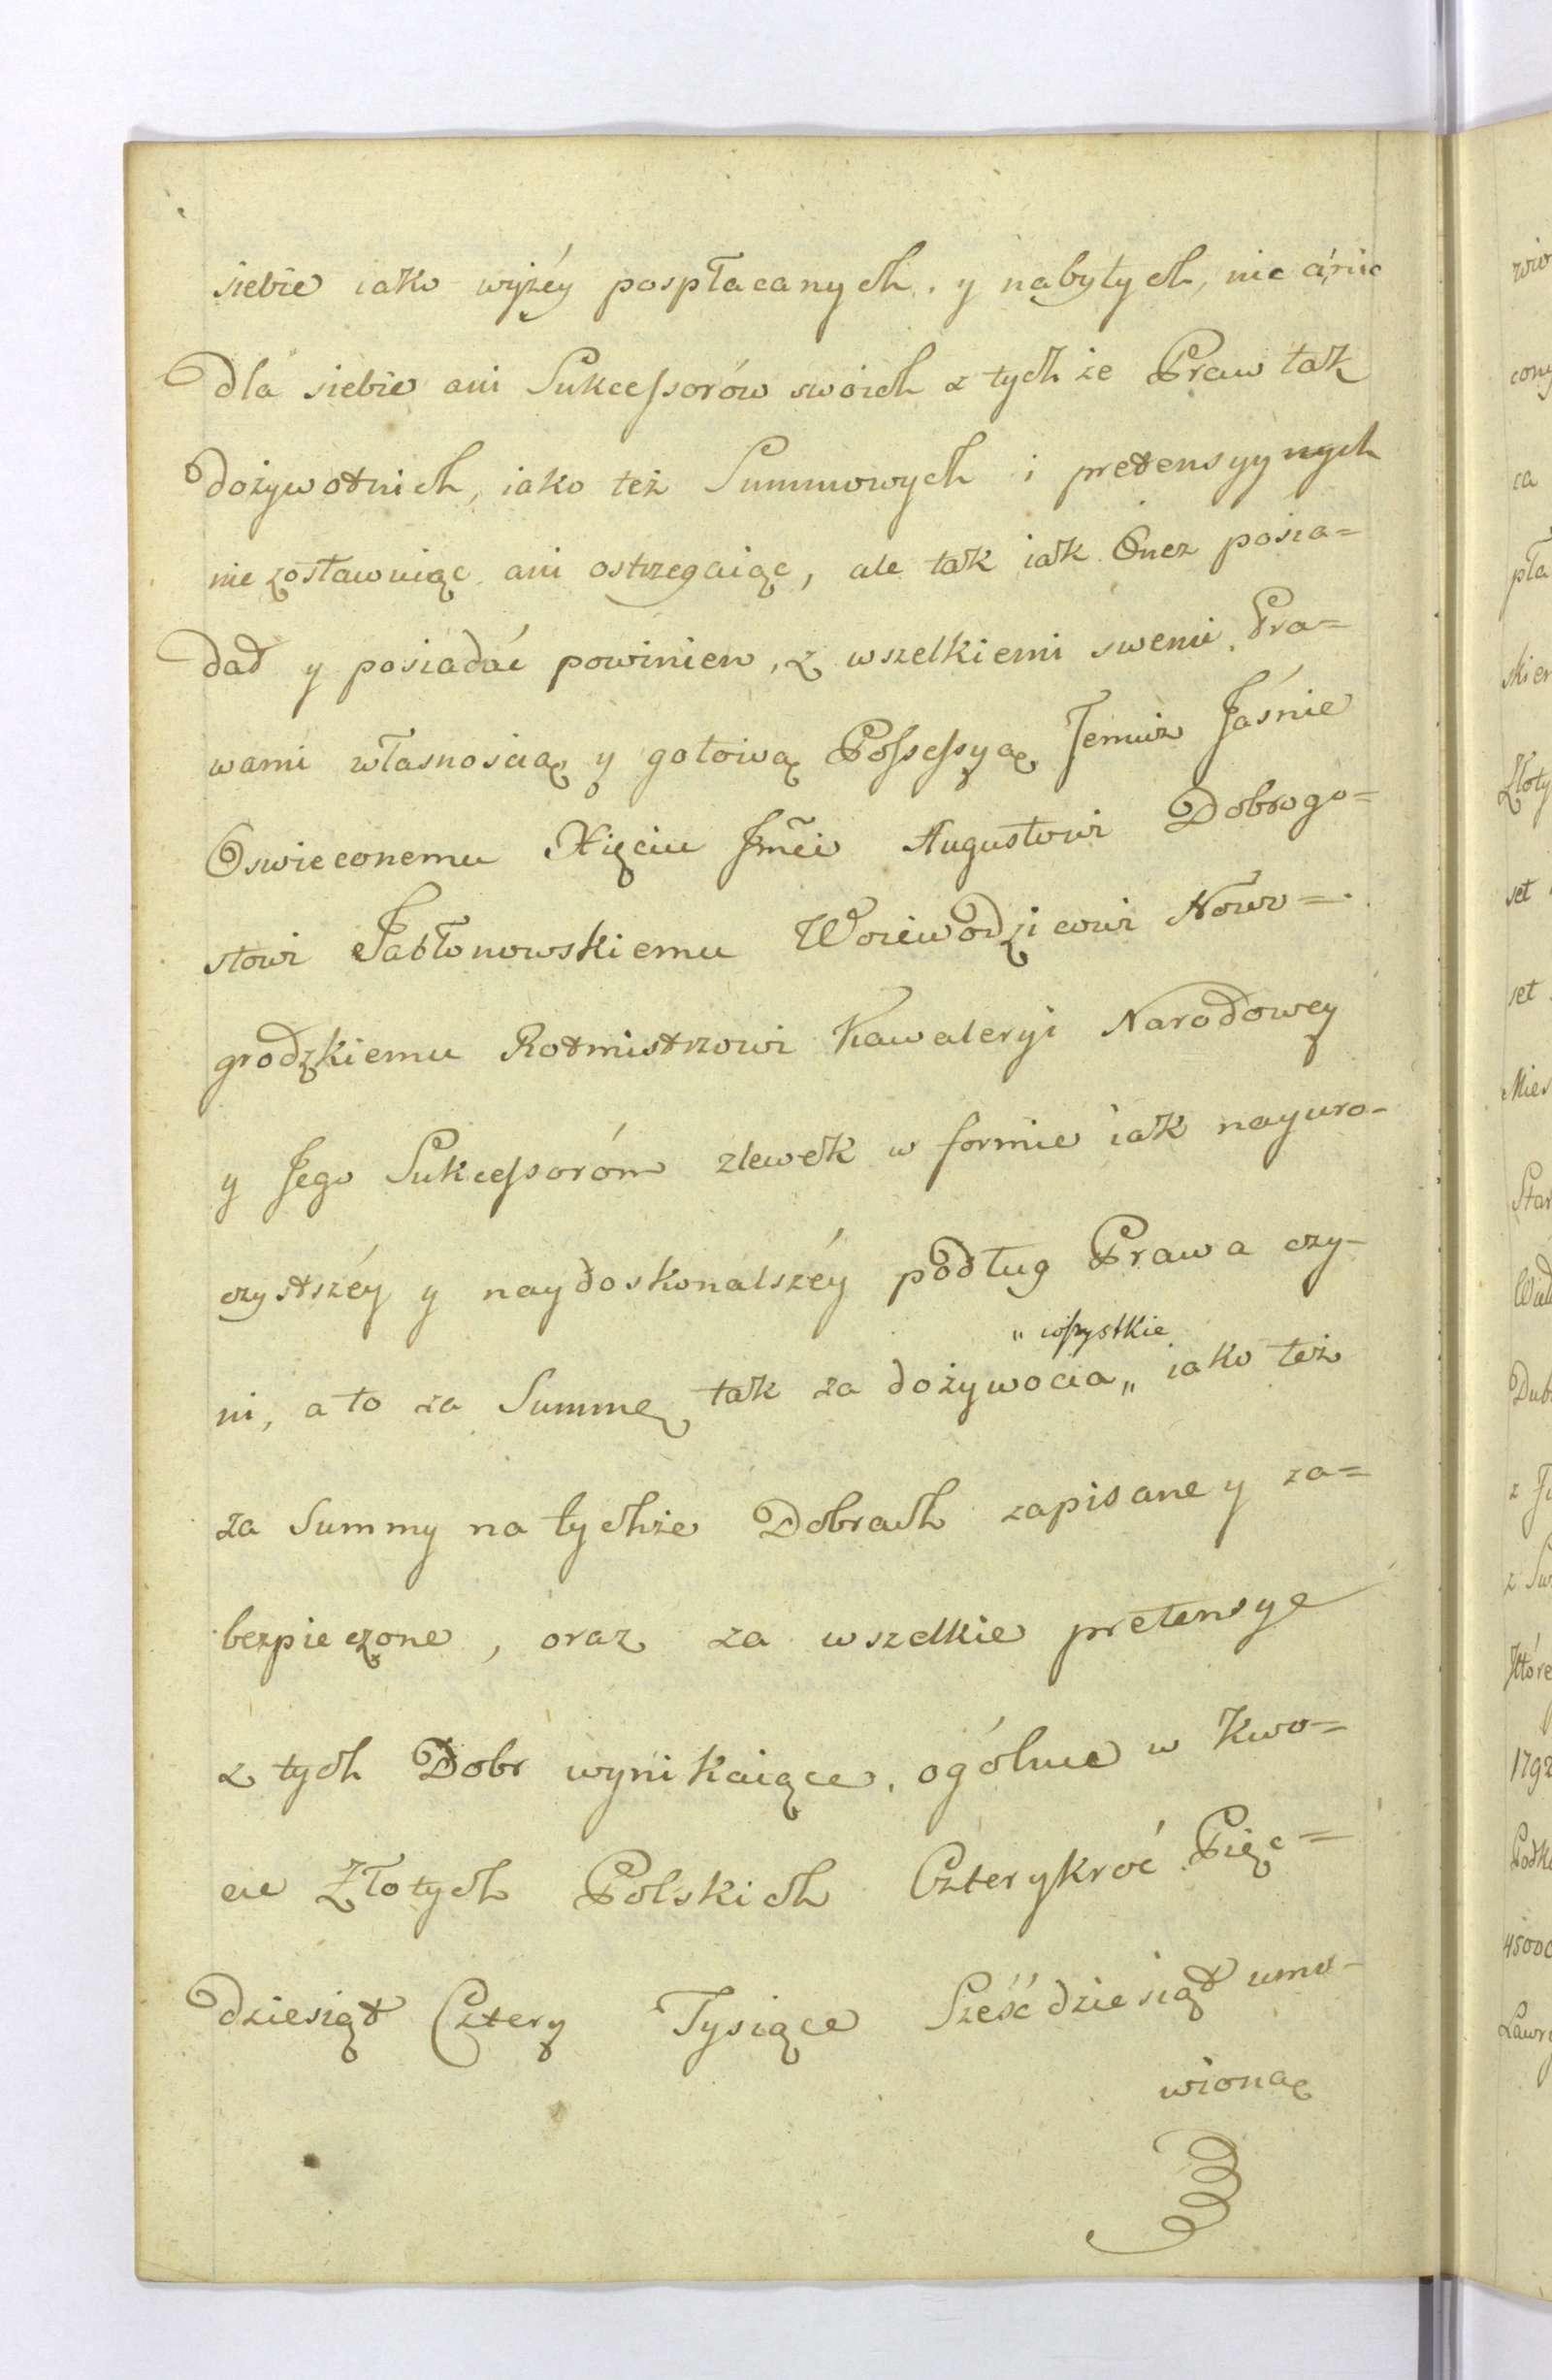 siebie iako wyżéy pospłacanych. y nabytych, nic a nic
dla siebie ani Sukcessorów swoich z tychże Praw tak
dożywotnich, iako też Summowych i pretensyynych
nie zostawuiąc ani ostrzegaiąc, ale tak iak Onez posia=
dał y posiadać powinien, z wszelkiemi swemi Pra=
wami własnoscią y gotową Possessyą Jemuż Jáśnie
Oswieconemu Xięciu Jmci Augustowi Dobrogo=
stowi Jabłonowskiemu Woiewodzicowi Nowo=
grodzkiemu Rotmistrzowi Kawaleryi Narodowey
y Jego Sukcessoróm zlewek w formie iak nayuro-
czystszéy y naydoskonalszéy podług Prawa czy-
„ wszystkie
ni, a to za Summę tak za dożywocia „ iako też
za Summy na tychże Dobrach zapisane y za=
bezpieczone, oraz za wszelkie pretensye
z tych Dobr wynikaiące, ogólnie w Kwo=
cie Złotych Polskich Czterykroć Pięć=
dziesiąt Cztery Tysiące Sześćdziesiąt umo-
wioną